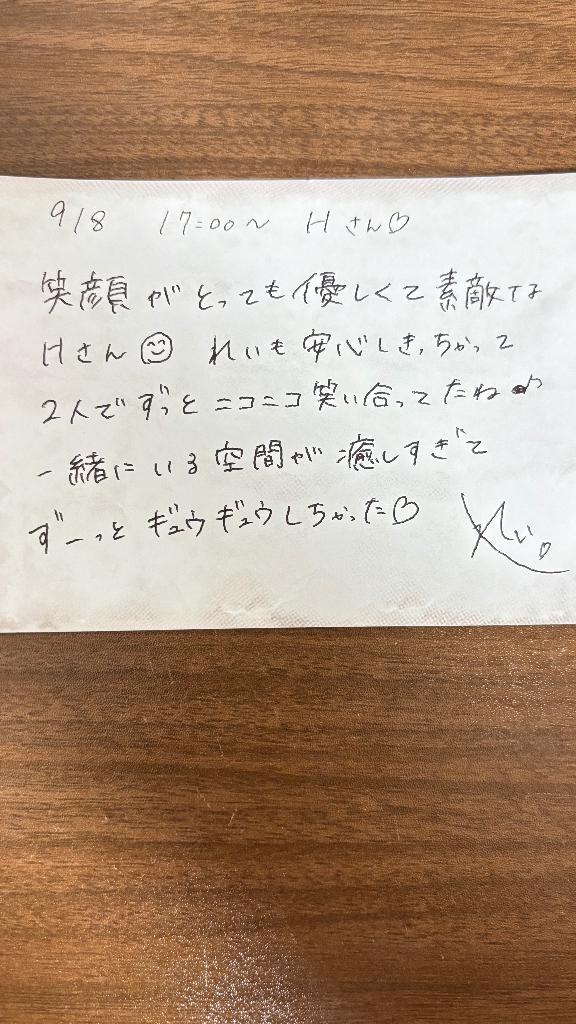 9/8 17:00～ Hさん♡
笑顔がとっても優しくて素敵な
Hさん☺ れいも安心しきっちゃって
2人でずっとニコニコ笑い合ってたね♪
一緒にいる空間が癒しすぎて
ずーっとギュウギュウしちゃった♡
れい♡